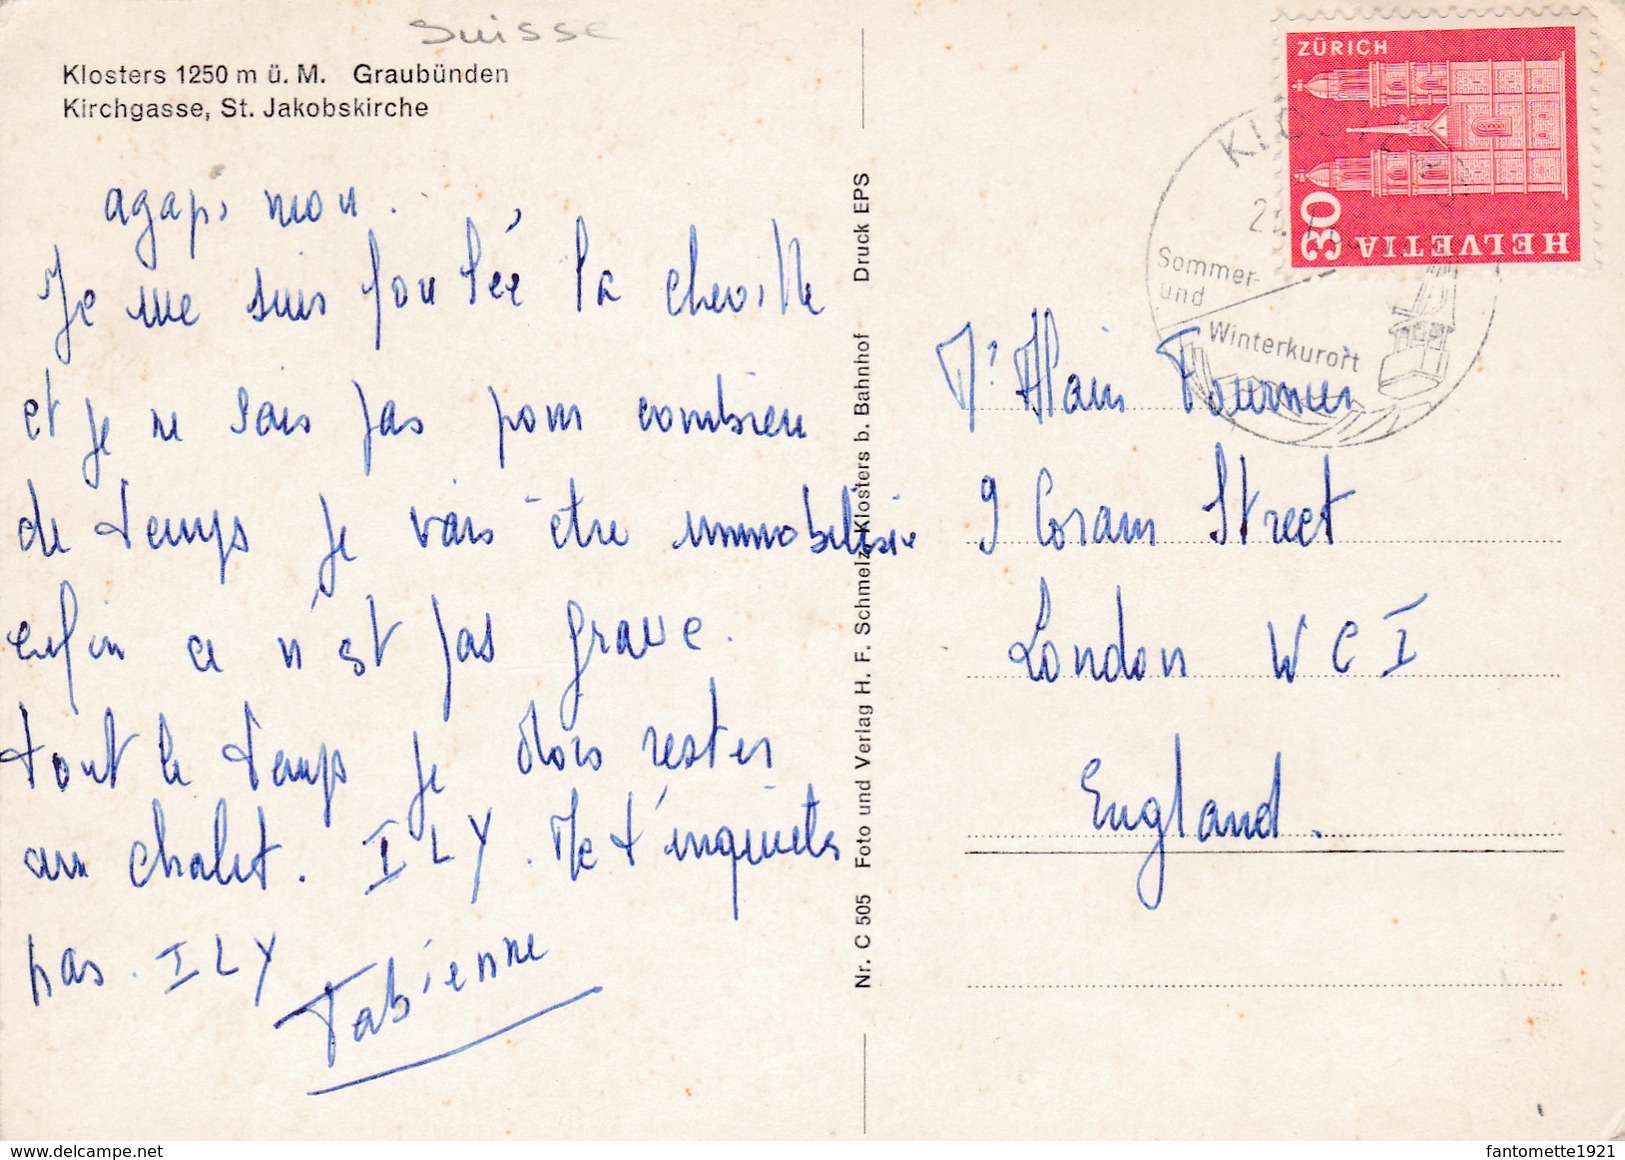 Suisse
Klosters 1250 m ü. M. Graubünden
Kirchgasse, St. Jakobskirche
agapi mon.
Je me suis foulée la cheville
et je ne sais pas pour combien
de temps je vais être immobilisée
enfin ce n'est pas grave.
tout le temps je dois rester
au chalet. I L Y. Ne t'inquiete
pas. I L Y
Fabienne
Nr. C 505 Foto und Verlag H. F. Schmelz, Klosters b. Bahnhof Druck EPS
ZÜRICH
30
HELVETIA
Sommer-
und
Winterkurort
Alain Fournier
9 Coram Street
London W C I
England.
fantomette1921